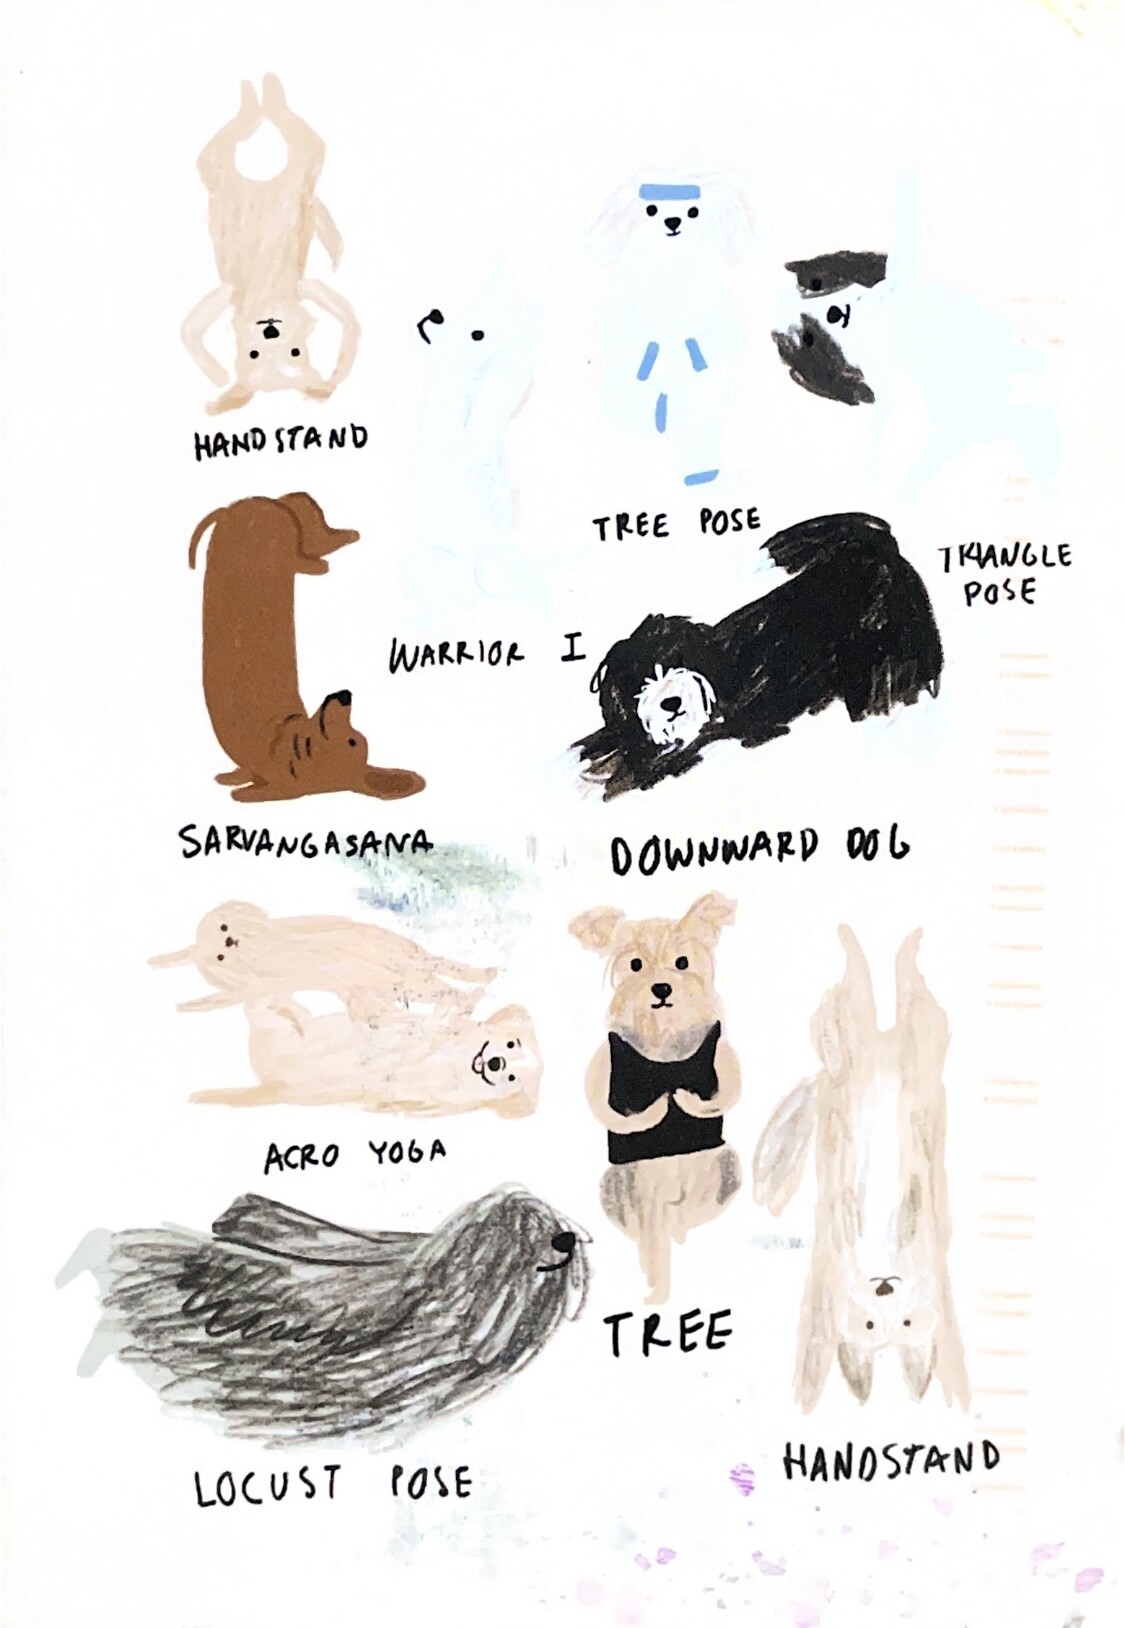 HANDSTAND
TREE POSE
TRIANGLE
POSE
WARRIOR I
SARVANGASANA
DOWNWARD DOG
ACRO YOGA
TREE
HANDSTAND
LOCUST POSE